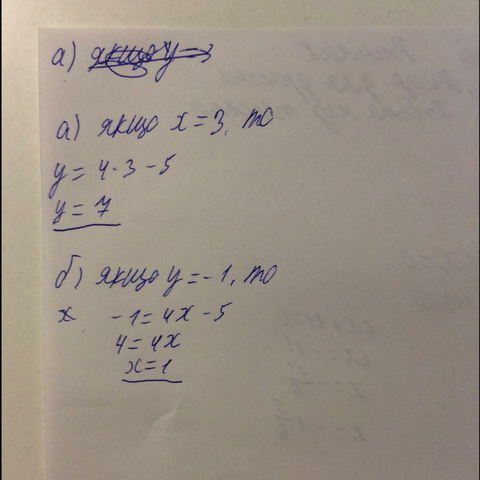 а) якщо y =
а) якщо x = 3, то
y = 4 · 3 - 5
y = 7
б) якщо y = - 1, то
x -1 = 4x - 5
4 = 4x
x = 1